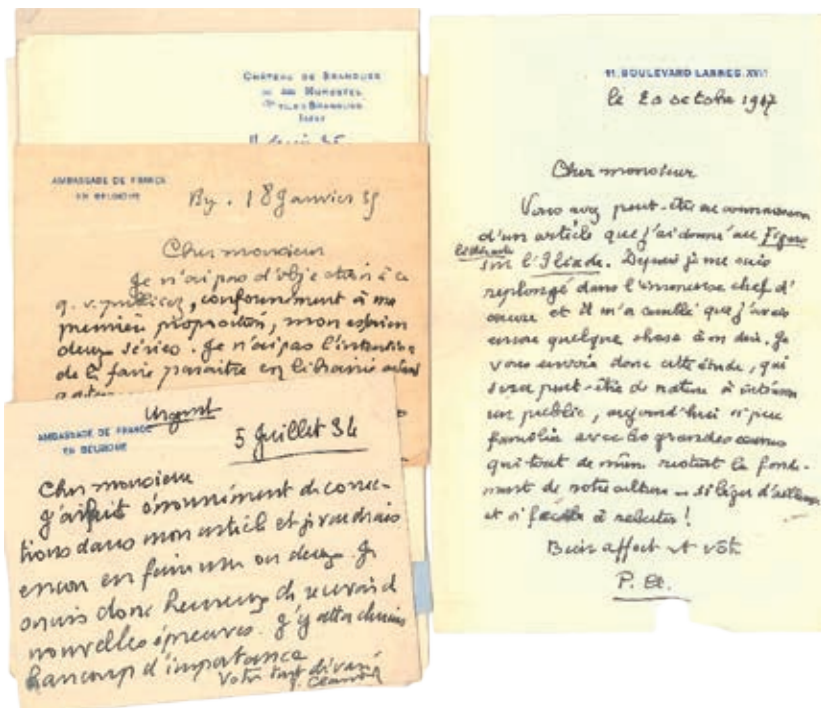 CHÂTEAU DE BRANGUES
ISÈRE
AMBASSADE DE FRANCE
EN BELGIQUE
18 Janvier 35
Cher monsieur
Je n'ai pas d'objection à ce
q. v. publiiez, conformément à ma
première proposition, mon essai en
deux séries. Je n'ai pas l'intention
de le faire paraître en librairie
Urgent
AMBASSADE DE FRANCE
EN BELGIQUE
5 Juillet 34
Cher monsieur
J'ai fait énormément de correc-
tions dans mon article et je voudrais
encore en faire une ou deux. Je
serais donc heureux de recevoir de
nouvelles épreuves. J'y attache
beaucoup d'importance
Votre tout dévoué
P. Claudel
11 BOULEVARD LANNES. XVIe
le 20 octobre 1947
Cher monsieur
Vous avez peut-être eu connaissance
d'un article que j'ai donné au Figaro
littéraire sur l'Iliade. Depuis je me suis
replongé dans l'immense chef d'
œuvre et il m'a semblé que j'avais
encore quelque chose à en dire. Je
vous envoie donc cette étude, qui
sera peut-être de nature à intéresser
un public, aujourd'hui si peu
familier avec les grandes œuvres
qui tout de même restent le fonde-
ment de notre culture - si léger d'ailleurs
et si facile à
Bien affect vt vôtre
P. Cl.